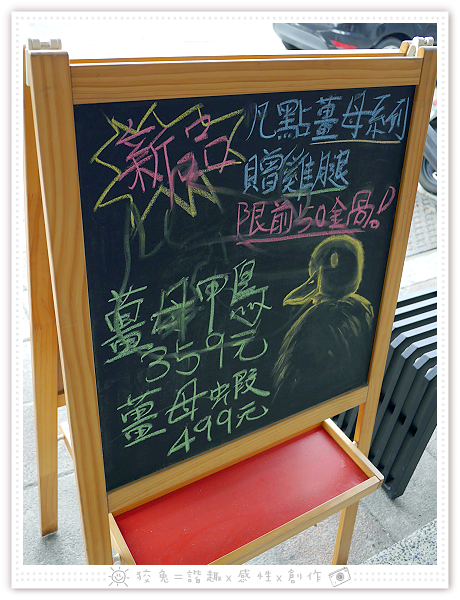 新品
凡點薑母系列
贈雞腿
限前50全鍋!
薑母鴨
359元
薑母蝦
499元
狡兔=諧趣x感性x創作